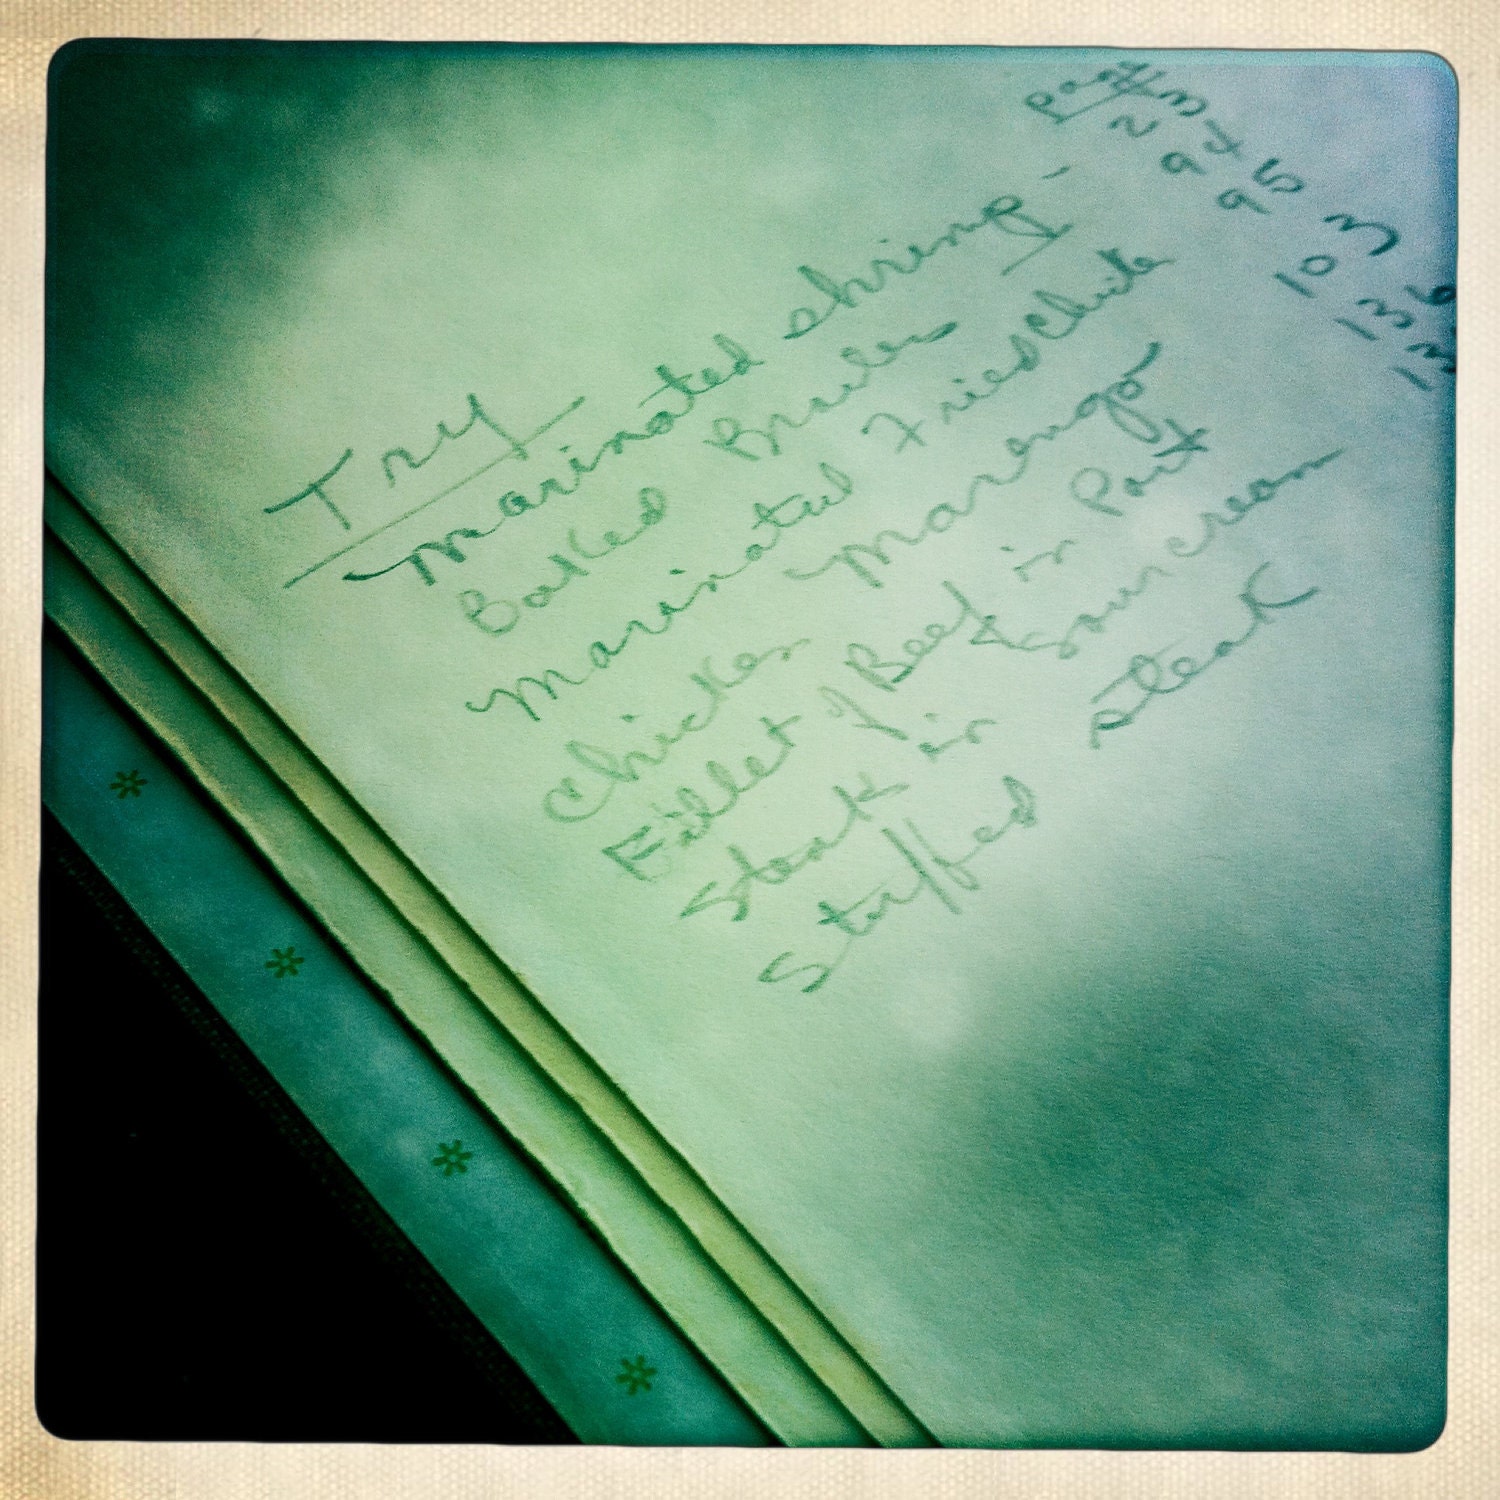 Page
Try
Marinated shrimp - 23
Baked 94
Marinated Fried Chick 95
Chicken Marengo 103
Fillet of Beef in Port 136
Steak in sour cream
Stuffed steak